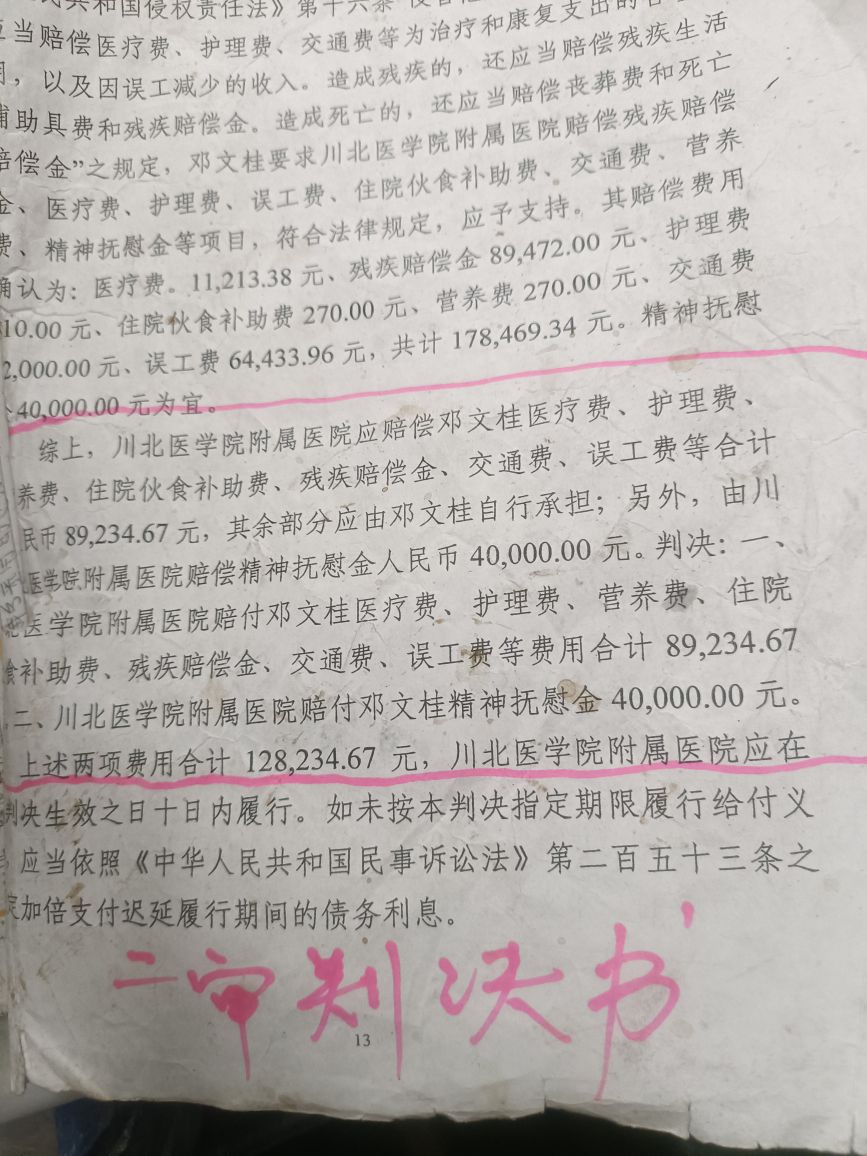 民共和国侵权责任法》第十六条
应当赔偿医疗费、护理费、交通费等为治疗和康复支出的
用，以及因误工减少的收入。造成残疾的，还应当赔偿残疾生活
辅助具费和残疾赔偿金。造成死亡的，还应当赔偿丧葬费和死亡
赔偿金”之规定，邓文桂要求川北医学院附属医院赔偿残疾赔偿
金、医疗费、护理费、误工费、住院伙食补助费、交通费、营养
费、精神抚慰金等项目，符合法律规定，应予支持。其赔偿费用
确认为：医疗费。11,213.38 元、残疾赔偿金 89,472.00 元、护理费
810.00 元、住院伙食补助费 270.00 元、营养费 270.00 元、交通费
2,000.00 元、误工费 64,433.96 元，共计 178,469.34 元。精神抚慰
金 40,000.00 元为宜。
综上，川北医学院附属医院应赔偿邓文桂医疗费、护理费、
养费、住院伙食补助费、残疾赔偿金、交通费、误工费等合计
民币 89,234.67 元，其余部分应由邓文桂自行承担；另外，由川
医学院附属医院赔偿精神抚慰金人民币 40,000.00 元。判决：一、
北医学院附属医院赔付邓文桂医疗费、护理费、营养费、住院
食补助费、残疾赔偿金、交通费、误工费等费用合计 89,234.67
二、川北医学院附属医院赔付邓文桂精神抚慰金 40,000.00 元。
上述两项费用合计 128,234.67 元，川北医学院附属医院应在
判决生效之日十日内履行。如未按本判决指定期限履行给付义
应当依照《中华人民共和国民事诉讼法》第二百五十三条之
定加倍支付迟延履行期间的债务利息。
二审判决书
13